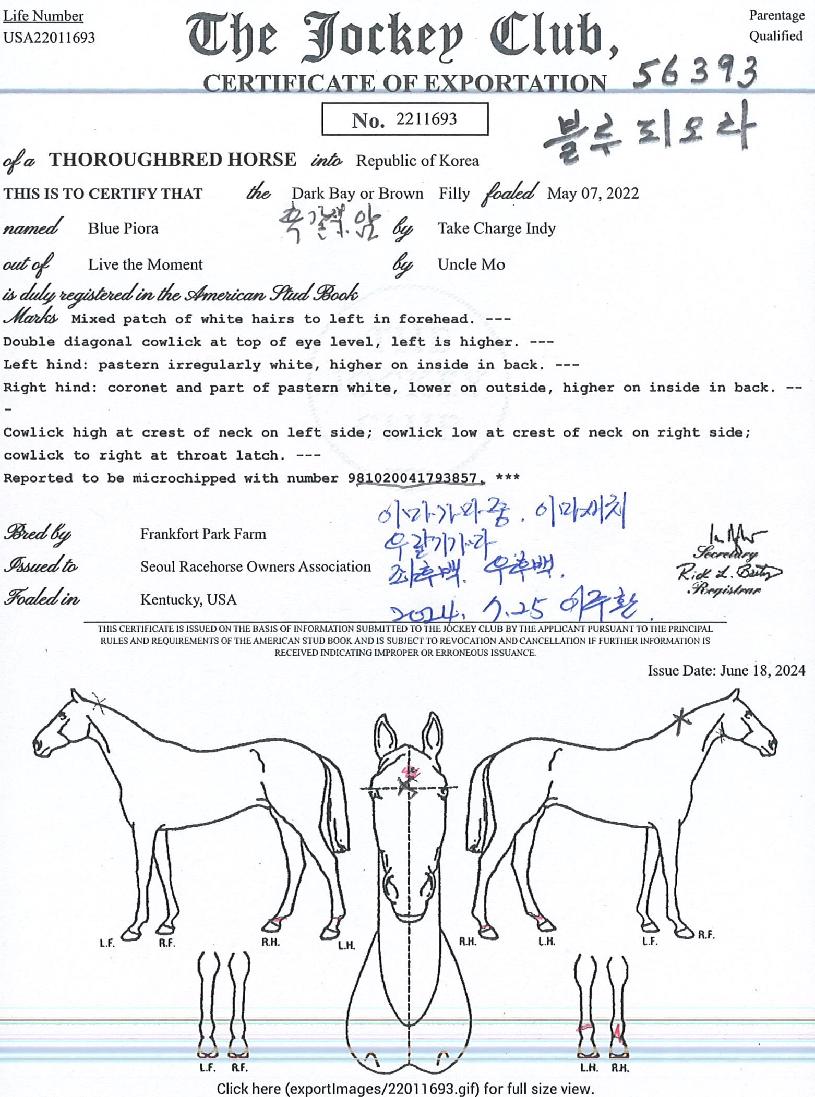 Life Number
USA22011693
The Jockey Club,
Parentage
Qualified
CERTIFICATE OF EXPORTATION
56393
No. 2211693
블루피오라
of a THOROUGHBRED HORSE into Republic of Korea
THIS IS TO CERTIFY THAT the Dark Bay or Brown Filly foaled May 07, 2022
흑갈색. 암
named Blue Piora by Take Charge Indy
out of Live the Moment by Uncle Mo
is duly registered in the American Stud Book
Marks Mixed patch of white hairs to left in forehead. ---
Double diagonal cowlick at top of eye level, left is higher. ---
Left hind: pastern irregularly white, higher on inside in back. ---
Right hind: coronet and part of pastern white, lower on outside, higher on inside in back. --
-
Cowlick high at crest of neck on left side; cowlick low at crest of neck on right side;
cowlick to right at throat latch. ---
Reported to be microchipped with number 981020041793857. ***
이마가마중. 이마새치
Bred by Frankfort Park Farm
Issued to Seoul Racehorse Owners Association
좌후백. 우후백.
Foaled in Kentucky, USA
2024. 7. 25 이주환
Secretary
Registrar
THIS CERTIFICATE IS ISSUED ON THE BASIS OF INFORMATION SUBMITTED TO THE JOCKEY CLUB BY THE APPLICANT PURSUANT TO THE PRINCIPAL
RULES AND REQUIREMENTS OF THE AMERICAN STUD BOOK AND IS SUBJECT TO REVOCATION AND CANCELLATION IF FURTHER INFORMATION IS
RECEIVED INDICATING IMPROPER OR ERRONEOUS ISSUANCE.
Issue Date: June 18, 2024
L.F. R.F. R.H. L.H. R.H. L.H. L.F. R.F.
L.F. R.F. L.H. R.H.
Click here (exportImages/22011693.gif) for full size view.